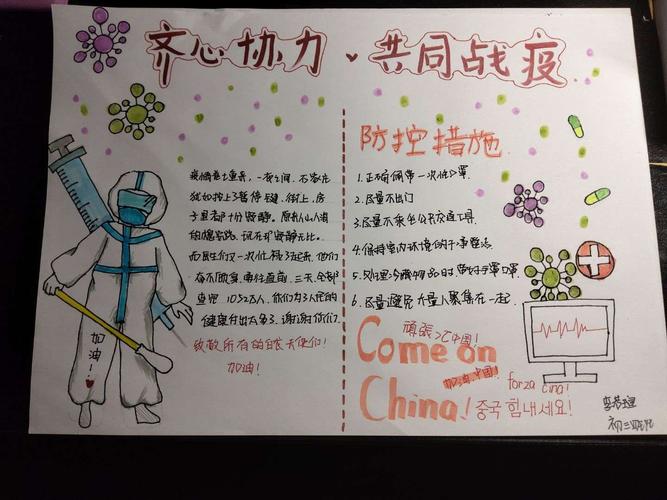 齐心协力、共同战疫
疫情卷土重来,一夜之间,石家庄
犹如按上了暂停键,街上,房
子里都十分寂静。原本人山人海
的火车站,现在却寂静无比。
而医生们又一次忙碌了起来,他们
奋不顾身,勇往直前,三天,全部
查完1032万人,你们为了人民的
健康付出太多了,谢谢你们。
致敬所有的白衣天使们!
加油!
加油!
防控措施
1.正确佩带一次性口罩
2.尽量不出门
3.尽量不乘坐公共交通工具.
4.保持室内环境的干净整洁.
5.处理冷藏物品时要带好手套口罩
6.尽量避免大量人聚集在一起.
頑張って中国!
Come on
加油,中国!
forza cina!
China!
중국 힘내세요!
初三